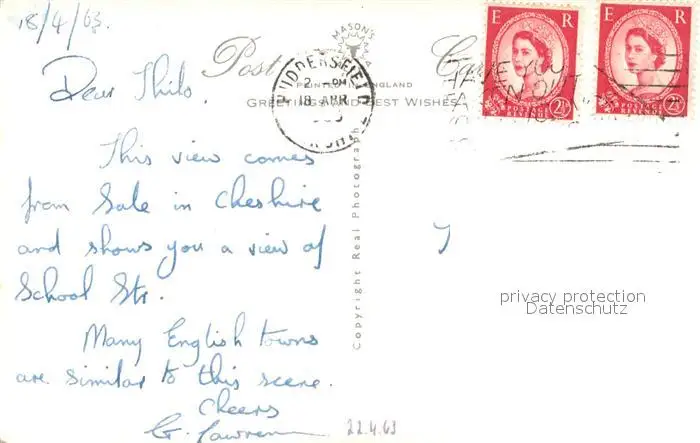 18/4/63.
Dear Thilo.
This view comes
from Sale in Cheshire
and shows you a view of
School Str.
Many English towns
are similar to this scene.
Cheers
G.
22.4.63
MASON'S
Post Card
PRINTED IN ENGLAND
GREETINGS AND BEST WISHES
Copyright Real Photograph
HUDDERSFIELD
2 - PM
18 APR
E R
POSTAGE
REVENUE
2½
E R
POSTAGE
REVENUE
2½
privacy protection
Datenschutz